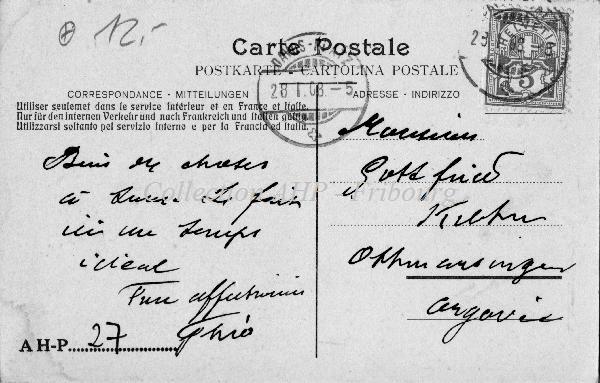 12.-
Carte Postale
POSTKARTE - CARTOLINA POSTALE
CORRESPONDANCE - MITTEILUNGEN
Utiliser seulemet dans le service intérieur et en France et Italie.
Nur für den internen Verkehr und nach Frankreich und Italien
Utilizzarsi soltanto pel servizio interno e per la Francia ed Italia.
ADRESSE - INDIRIZZO
HELVETIA
5
DAVOS-PLATZ
28.I.08.-5
Collection AHP - Fribourg
Bien de choses
à
ici un temps
idéal
AH-P 27
Monsieur
Gottfried
Othmarsingen
Argovie